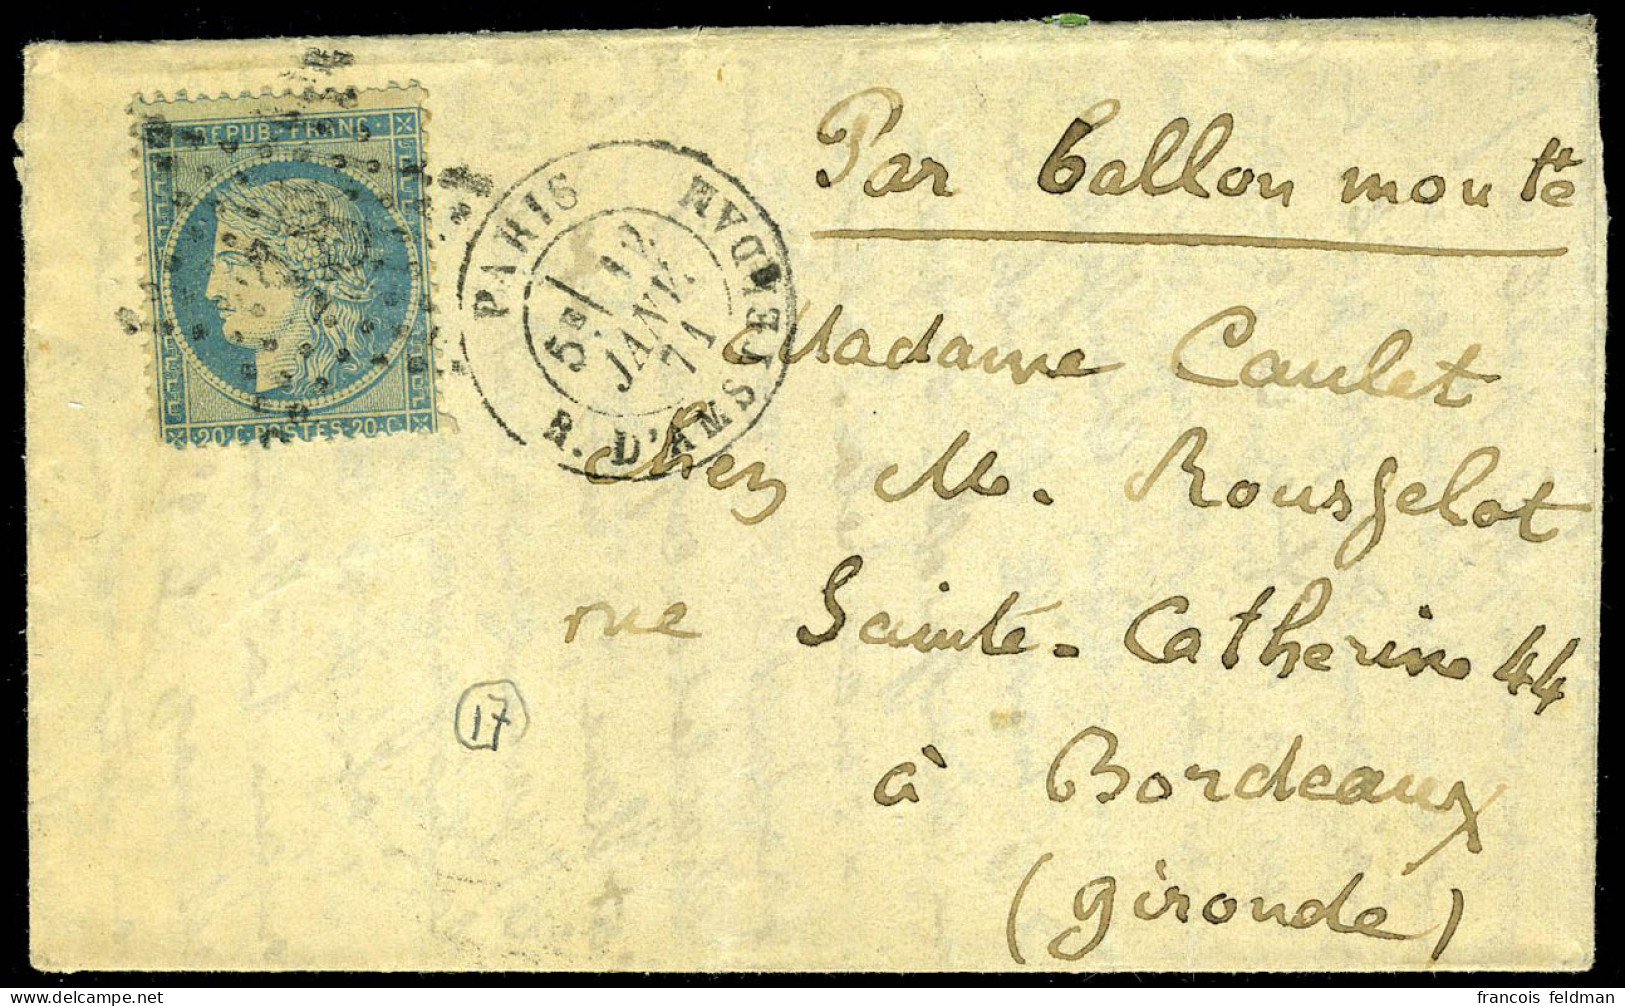 REPUB·FRANC·
20·C·POSTES·20·C·
PARIS
R. D'AMSTERDAM
5E/ 12
JANV.
71
Par ballon monté
Madame Caulet
Chez M. Rousselot
rue Sainte-Catherine 44
à Bordeaux
(Gironde)
17
francois feldman